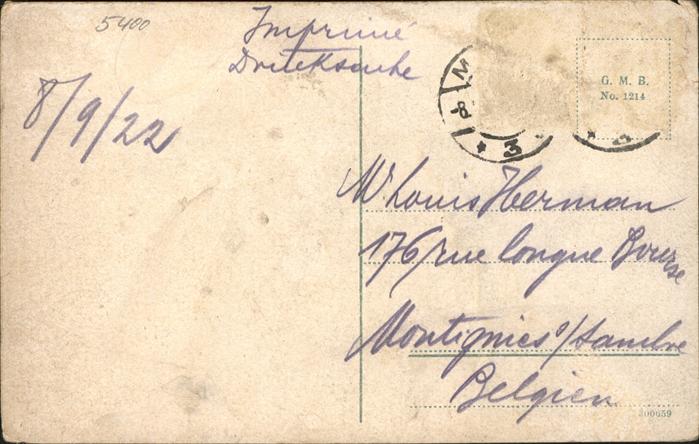 5400
Imprimé
Drucksache
8/9/22
G. M. B.
No. 1214
M
8
* 3
Mr Louis Herman
176 rue longue Bourse
Montignies s/Sambre
Belgien
300659